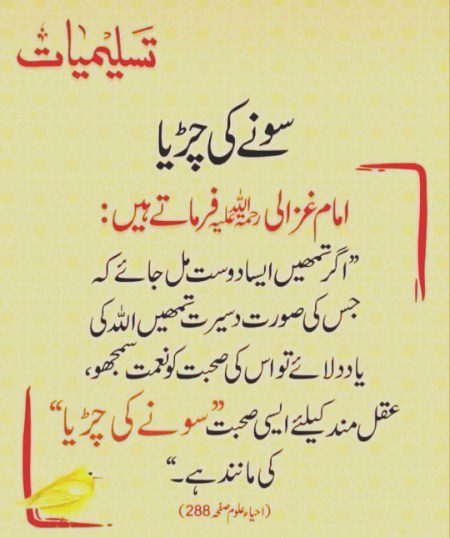 تسلیمیات
سونے کی چڑیا
امام غزالی رحمۃ اللہ علیہ فرماتے ہیں:
”اگر تمھیں ایسا دوست مل جائے کہ
جس کی صورت و سیرت تمھیں اللہ کی
یاد دلائے تو اس کی صحبت کو نعمت سمجھو،
عقل مند کیلئے ایسی صحبت ”سونے کی چڑیا“
کی مانند ہے۔“
(احیاء علوم صفحہ 288)